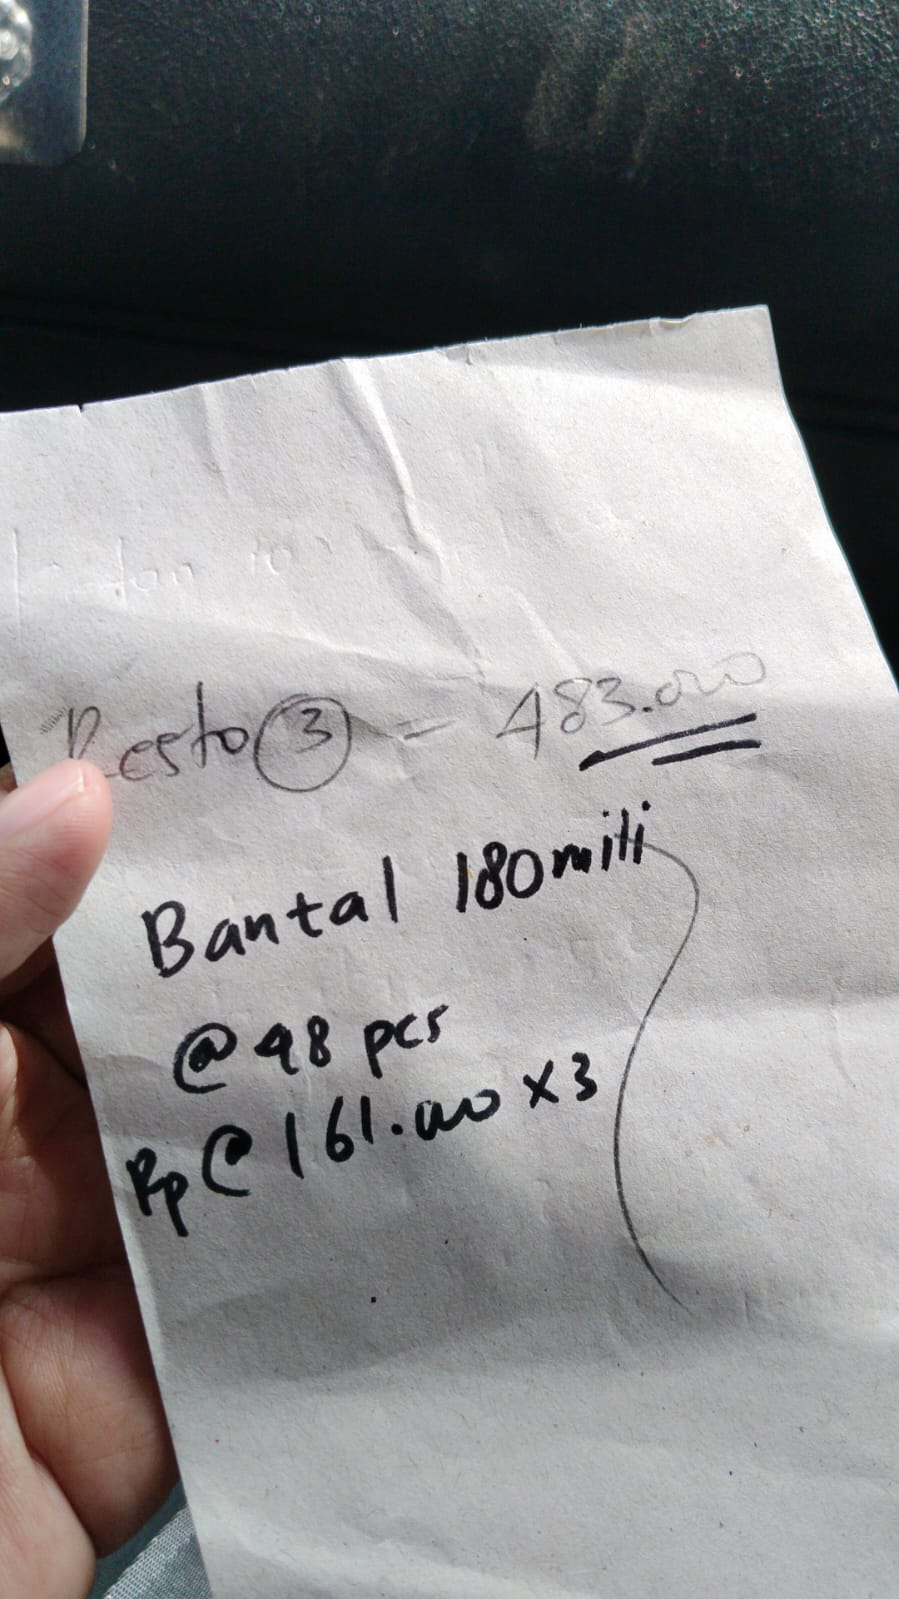 Resto 3 = 483.000
Bantal 180mili
@ 48 pcs
Rp @ 161.000 x 3